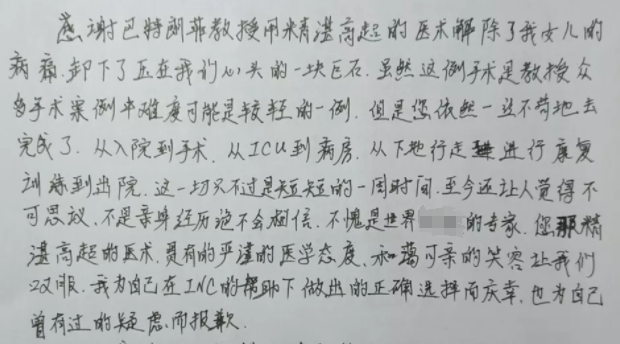 感谢巴特朗菲教授用精湛高超的医术解除了我女儿的
病痛.卸下了压在我们心头的一块巨石.虽然这例手术是教授众
多手术案例中难度可能是较轻的一例.但是您依然一丝不苟地去
完成了.从入院到手术.从ICU到病房.从下地行走进行康复
训练到出院.这一切只不过是短短的一周时间.至今还让人觉得不
可思议.不是亲身经历绝不会相信.不愧是世界的专家.您那精
湛高超的医术.具有的严谨的医学态度.和蔼可亲的笑容让我们
叹服.我为自己在INC的帮助下做出的正确选择而庆幸.也为自己
曾有过的疑虑而抱歉.